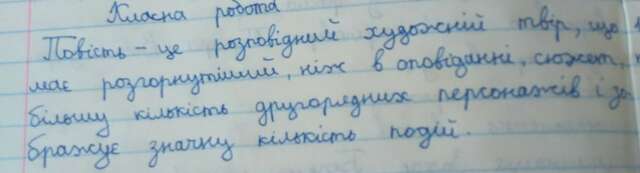 Класна робота
Повість - це розповідний художній твір, що
має розгорнутіший, ніж в оповіданні, сюжет,
більшу кількість другорядних персонажів і зо
бражує значну кількість подій.